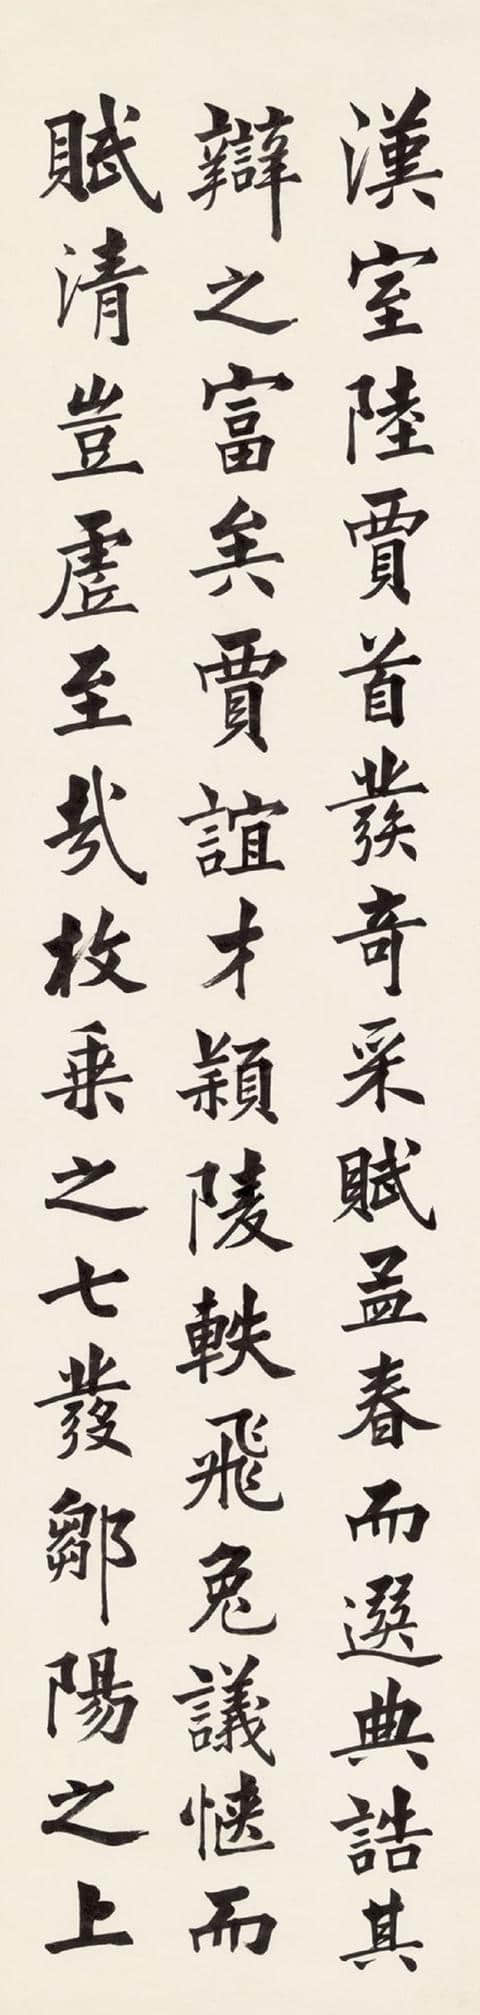 漢室陸賈首發奇采賦孟春而選典誥其
辯之富矣賈誼才穎陵軼飛兔議愜而
賦清豈虛至哉枚乘之七發鄒陽之上